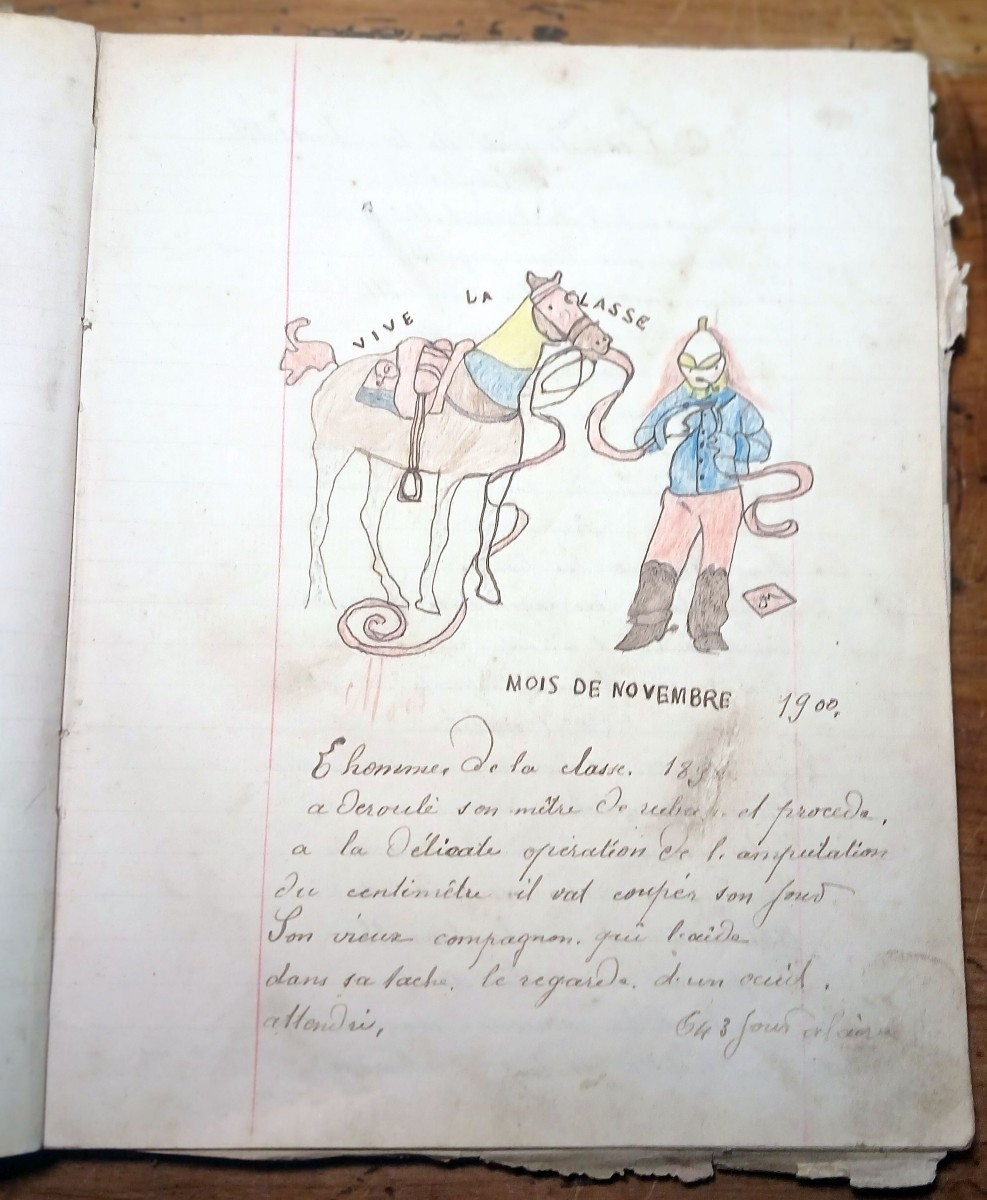 VIVE LA CLASSE
MOIS DE NOVEMBRE 1900,
L'homme, de la classe.
a deroulé son mêtre de ruban. et procede,
a la délicate opération de l'amputation
du centimêtre il vat coupér son jour
Son vieux compagnon. qui l'aide
dans sa tache. le regarde. d'un oeuil.
attendri,
643 jours a faire